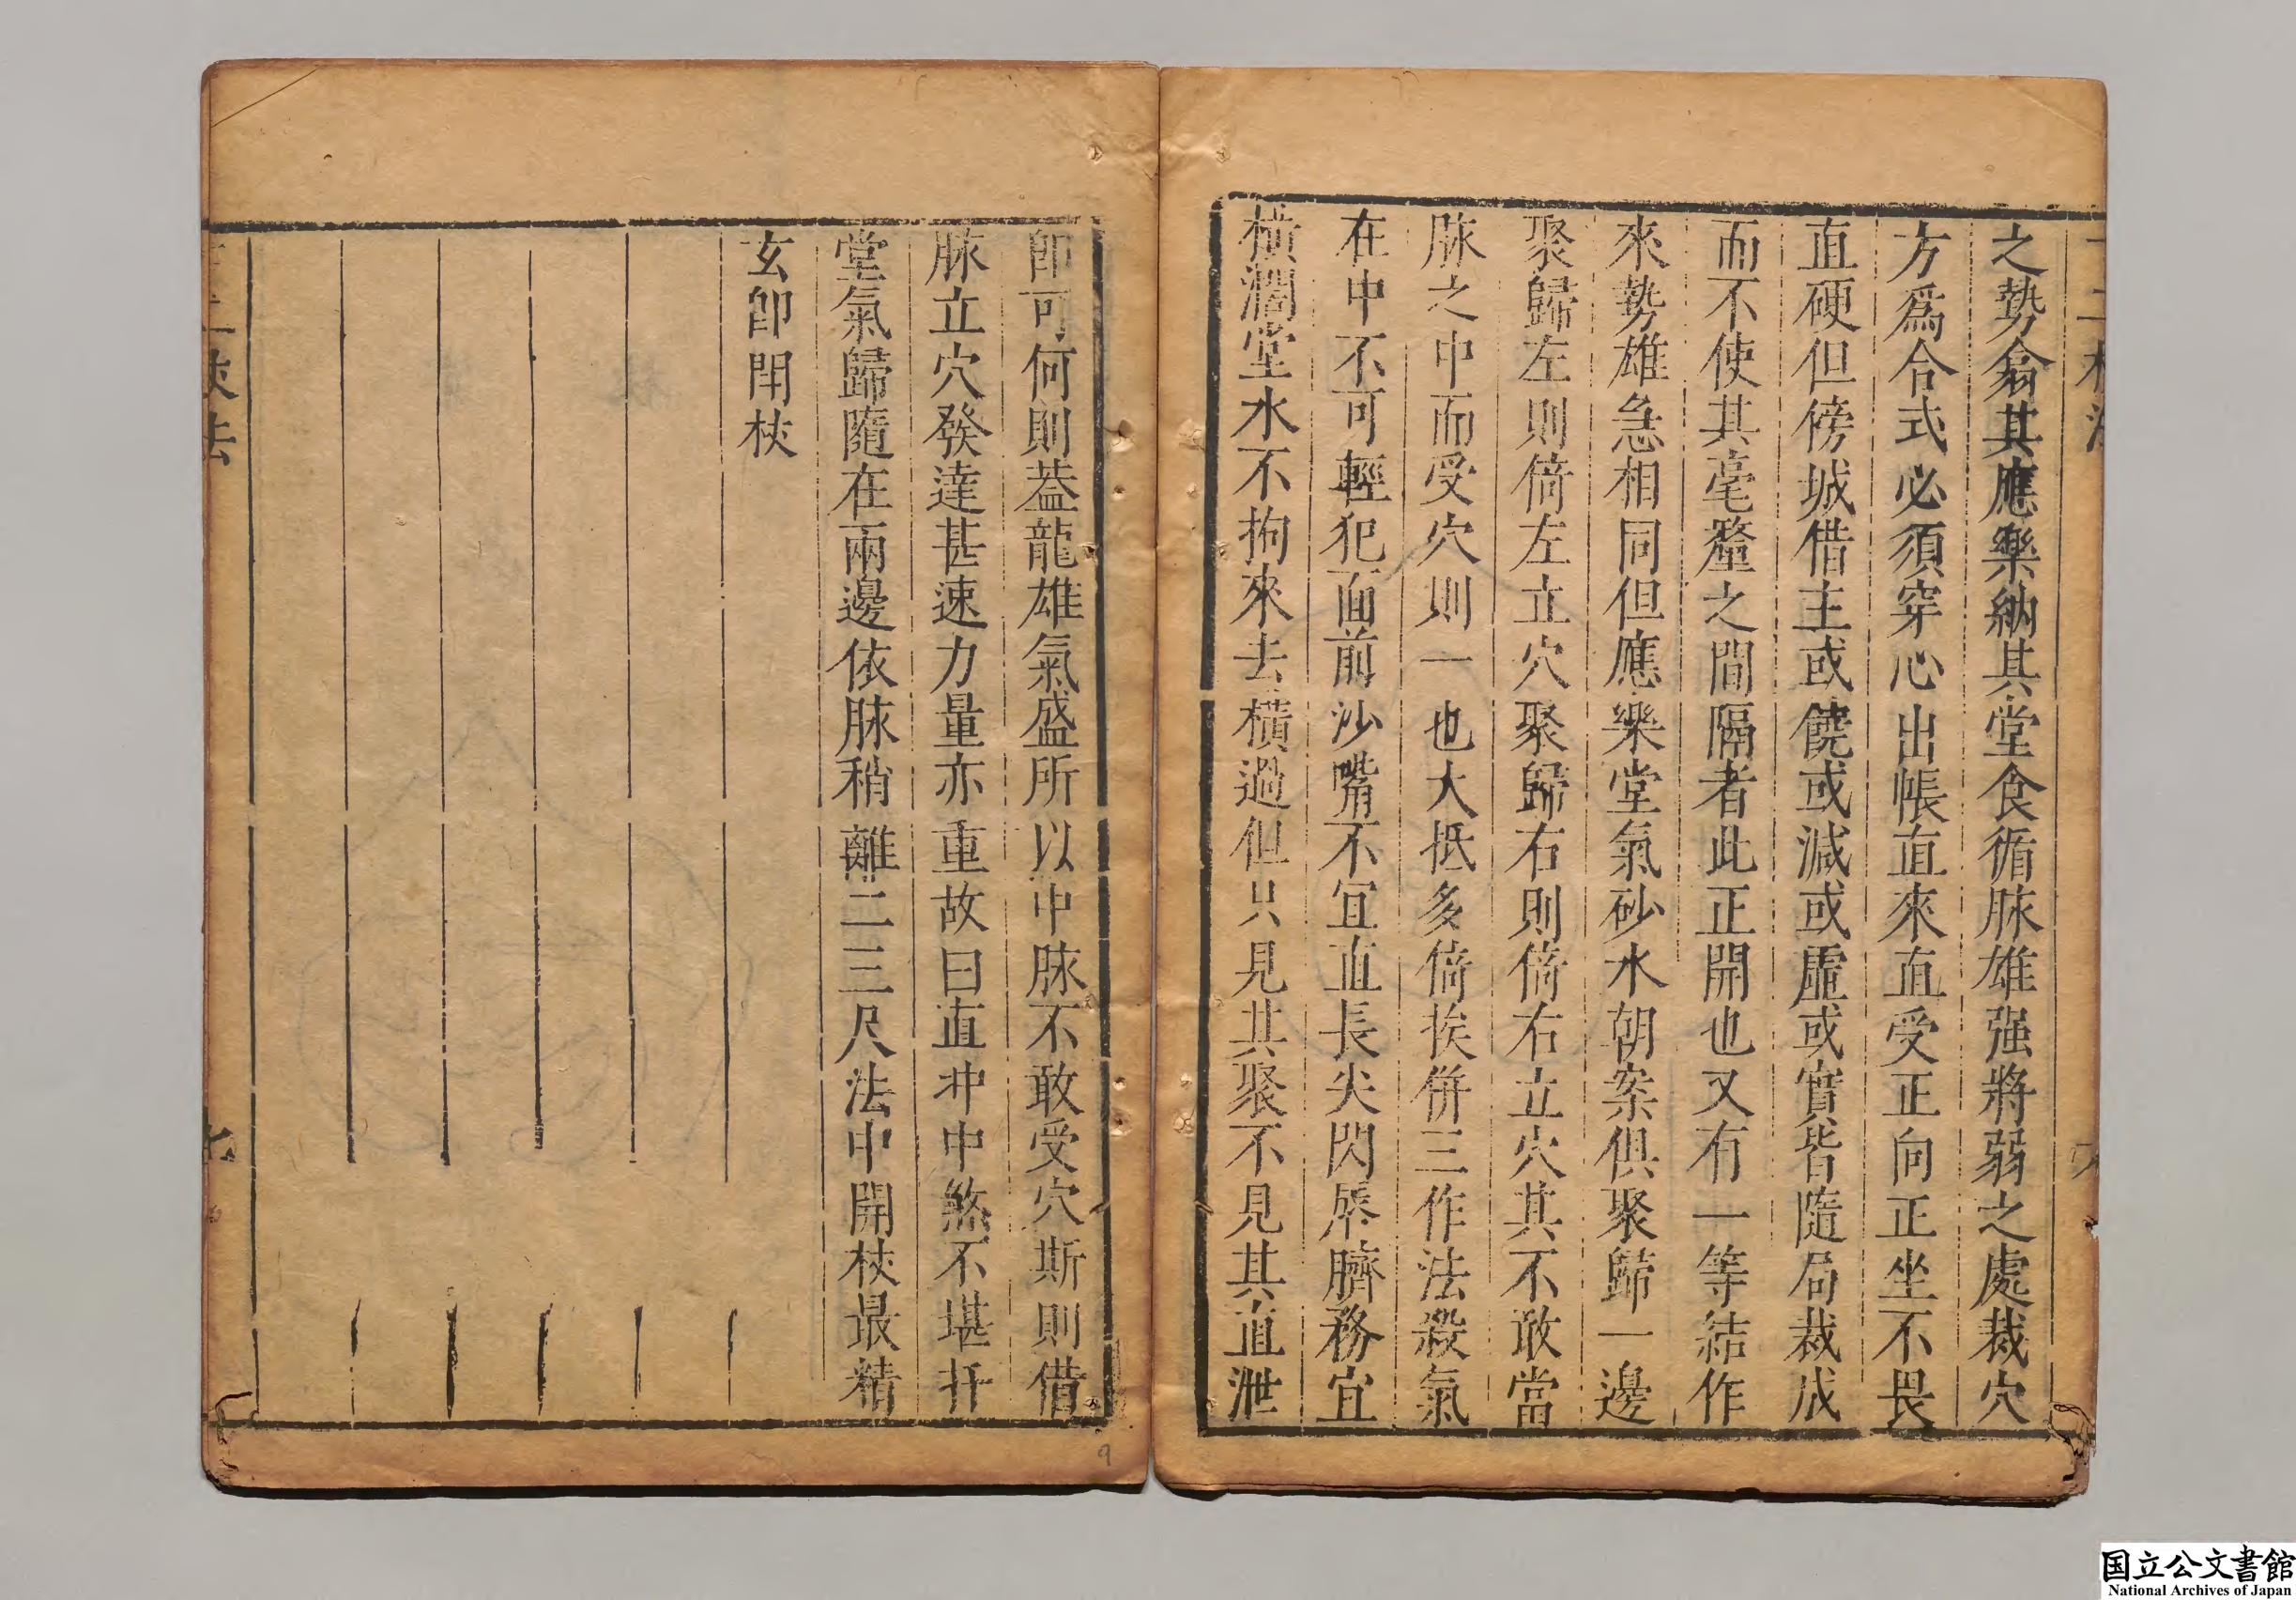 之勢翕其應樂納其堂食循脉雄强將弱之處裁穴
方爲合式必須穿心出帳直來直受正向正坐不畏
直硬但傍城借主或饒或減或虛或實皆隨局裁成
而不使其毫釐之間隔者此正開也又有一等結作
來勢雄急相同但應樂堂氣砂水朝案俱聚歸一邊
聚歸左則倚左立穴聚歸右則倚右立穴其不敢當
脉之中而受穴則一也大抵多倚挨併三作法殺氣
在中不可輕犯面前沙嘴不宜直長尖閃唇臍務宜
橫濶堂水不拘來去橫過但只見其聚不見其直泄
卽可何則葢龍雄氣盛所以中脉不敢受穴斯則借
脉立穴發達甚速力量亦重故曰直冲中煞不堪扦
堂氣歸隨在兩邊依脉稍離二三尺法中開杖最精
玄卽開杖
杖法
国立公文書館
National Archives of Japan
9